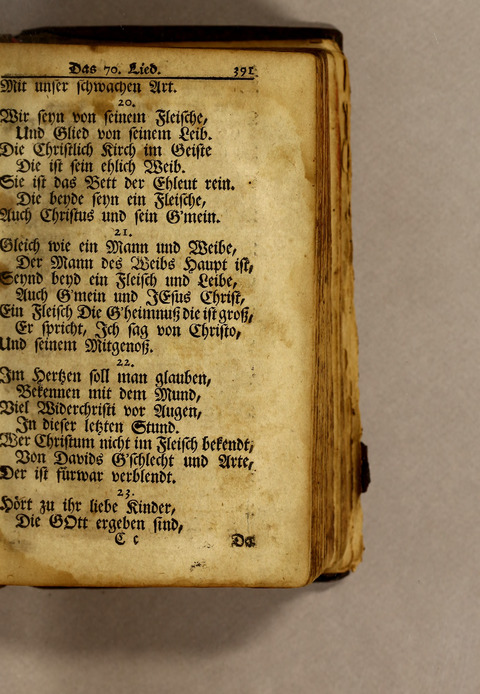 Das 70. Lied. 391
Mit unser schwachen Art.
20.
Wir seyn von seinem Fleische,
Und Glied von seinem Leib.
Die Christlich Kirch im Geiste
Die ist sein ehlich Weib.
Sie ist das Bett der Ehleut rein.
Die beyde seyn ein Fleische,
Auch Christus und sein G'mein.
21.
Gleich wie ein Mann und Weibe,
Der Mann des Weibs Haupt ist,
Seynd beyd ein Fleisch und Leibe,
Auch G'mein und JEsus Christ,
Ein Fleisch Die G'heimnuß die ist groß,
Er spricht, Ich sag von Christo,
Und seinem Mitgenoß.
22.
Im Hertzen soll man glauben,
Bekennen mit dem Mund,
Viel Widerchristi vor Augen,
In dieser letzten Stund.
Wer Christum nicht im Fleisch bekendt,
Von Davids G'schlecht und Arte,
Der ist fürwar verblendt.
23.
Hört zu ihr liebe Kinder,
Die GOtt ergeben sind,
C c